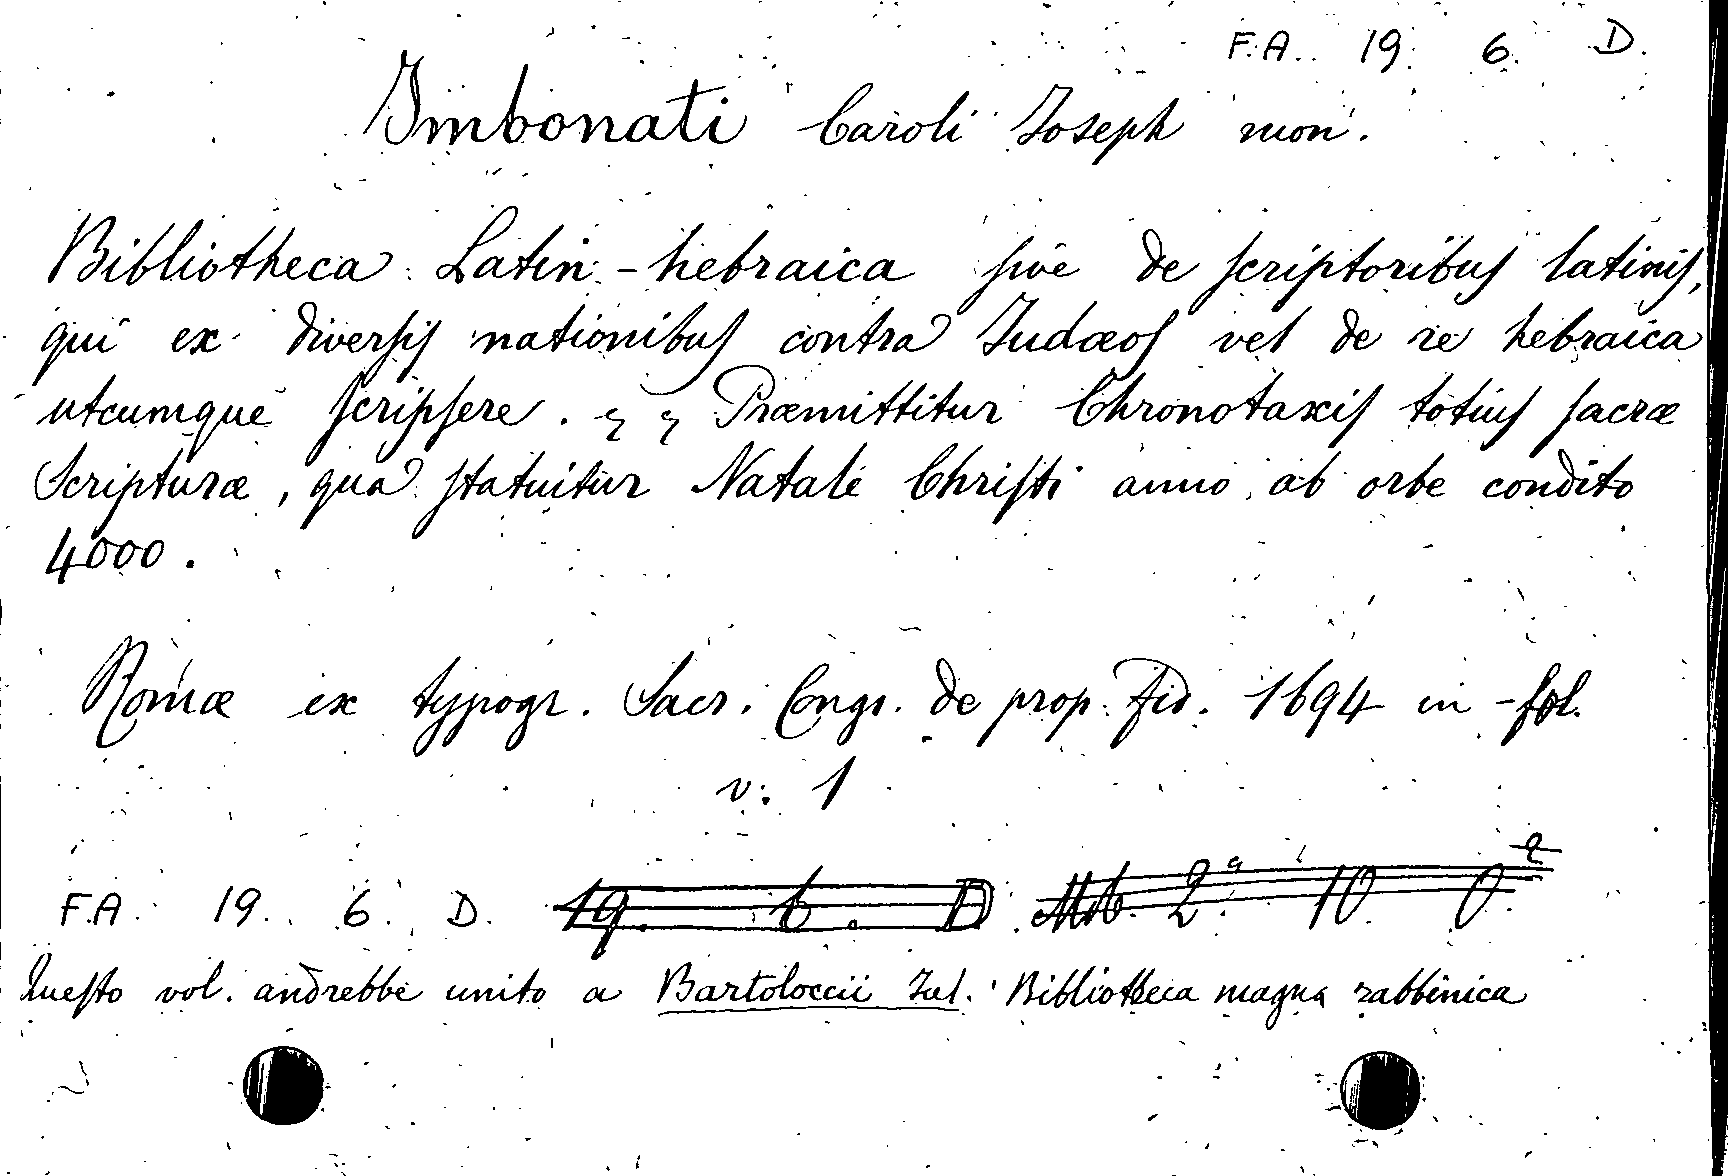 F.A. 19. 6. D.
Imbonati Caroli Joseph mon.
Bibliotheca Latin.-hebraica sive de scriptoribus latinis,
qui ex diversis nationibus contra Judæos vel de re hebraica
utcumque scripsere. Præmittitur Chronotaxis totius sacræ
Scripturæ, qua statuitur Natale Christi anno ab orbe condito
4000.
Romæ ex typogr. Sacr. Congr. de prop. fid. 1694 in-fol.
v. 1
F.A. 19. 6. D. 19. 6. D. Mb. 2ª. 10. 0. 2
Questo vol. andrebbe unito a Bartoloccii Jul. Bibliotheca magna rabbinica